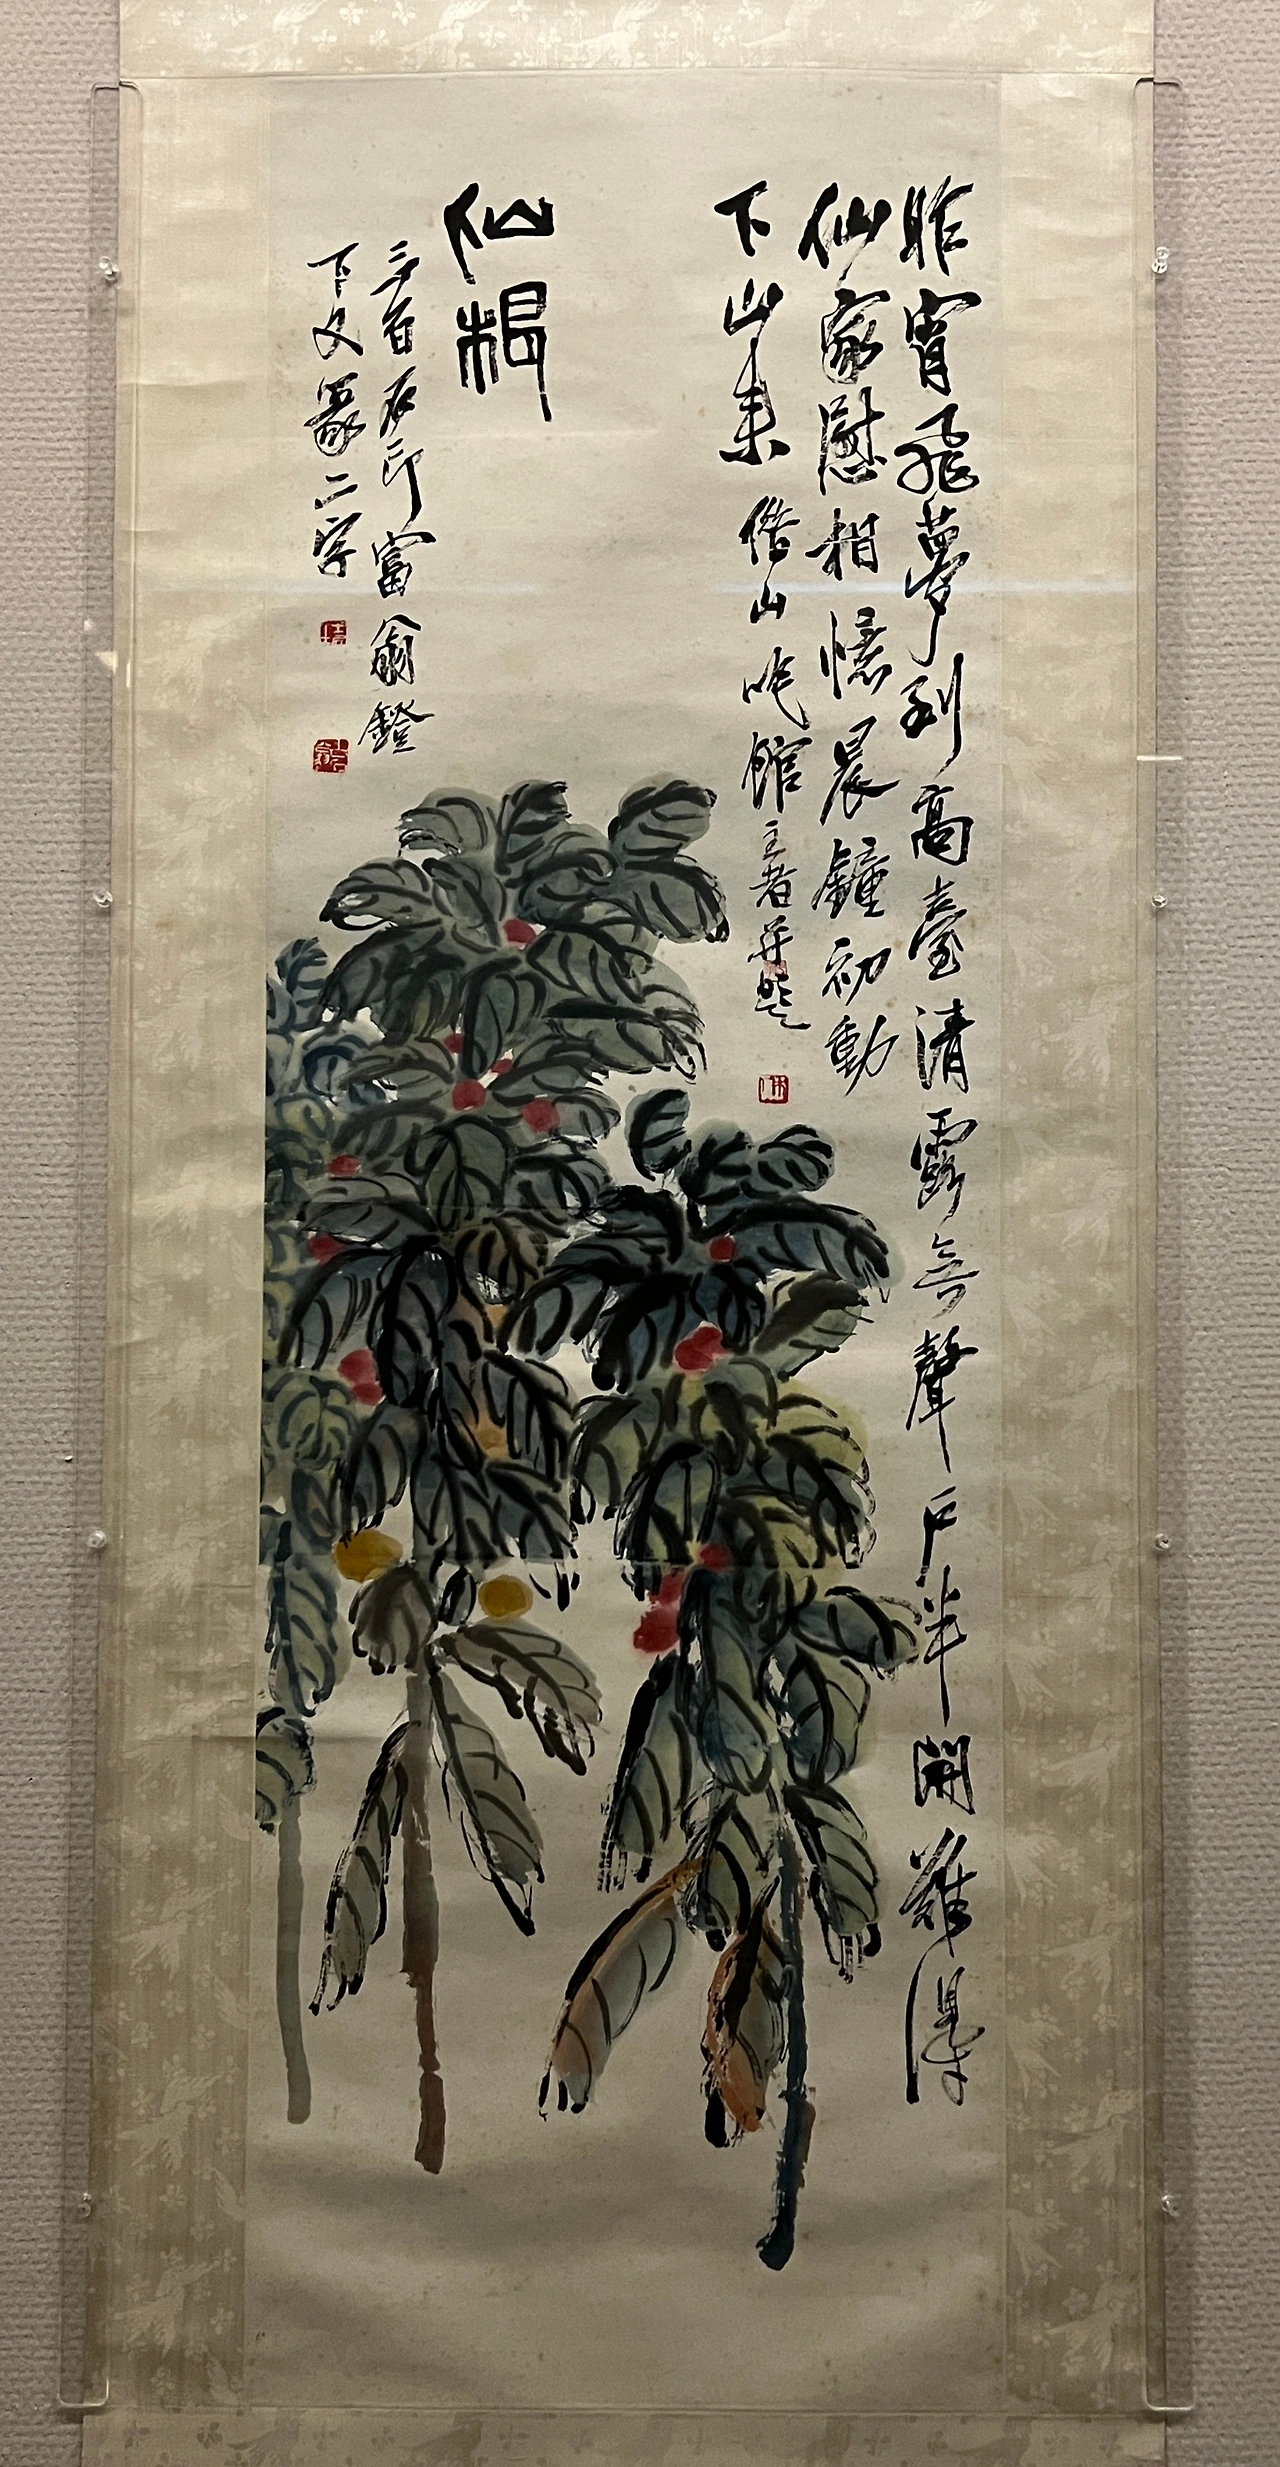 昨宵飛夢到高臺清露無聲戶半開難得
仙家慰相憶晨鐘初動
下山來 借山吟館主者并題
仙根
三百石印富翁鐙
下又篆二字